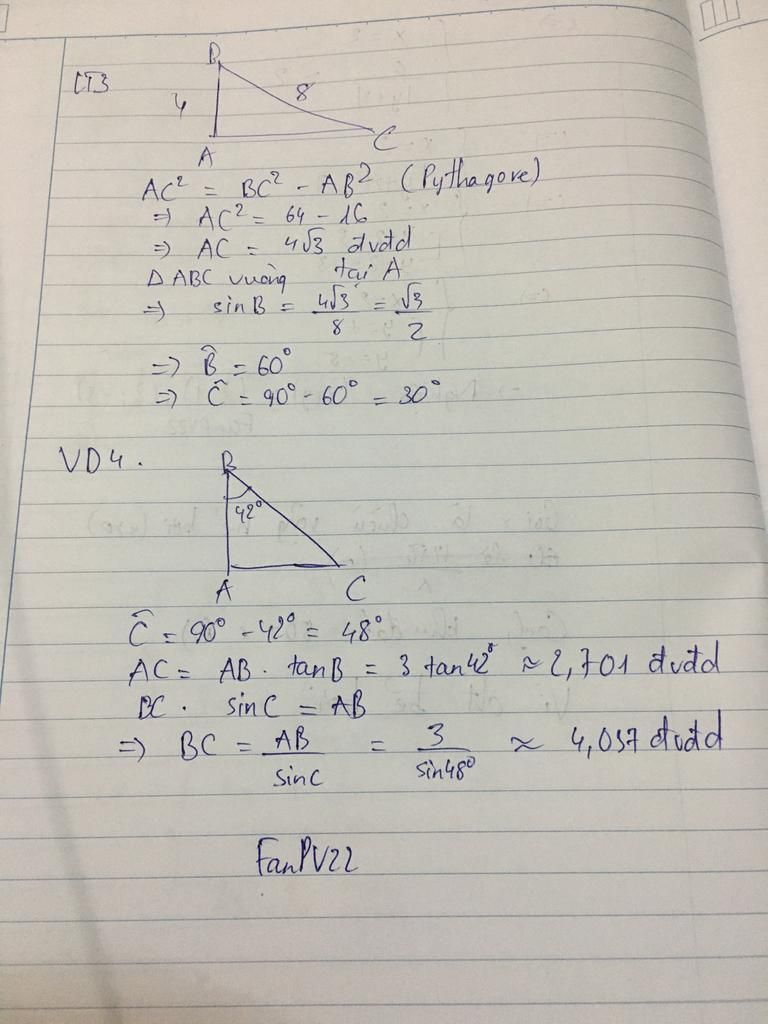 LT3
B
4
8
A
C
AC² = BC² - AB² (Pythagore)
=> AC² = 64 - 16
=> AC = 4√3 đvđd
Δ ABC vuông tại A
=> sinB = 4√3/8 = √3/2
=> B̂ = 60°
=> Ĉ = 90° - 60° = 30°
VD4.
B
42°
A
C
Ĉ = 90° - 42° = 48°
AC = AB . tanB = 3 tan42° ≈ 2,701 đvđd
BC . sinC = AB
=> BC = AB/sinC = 3/sin48° ≈ 4,037 đvđd
FanPV22